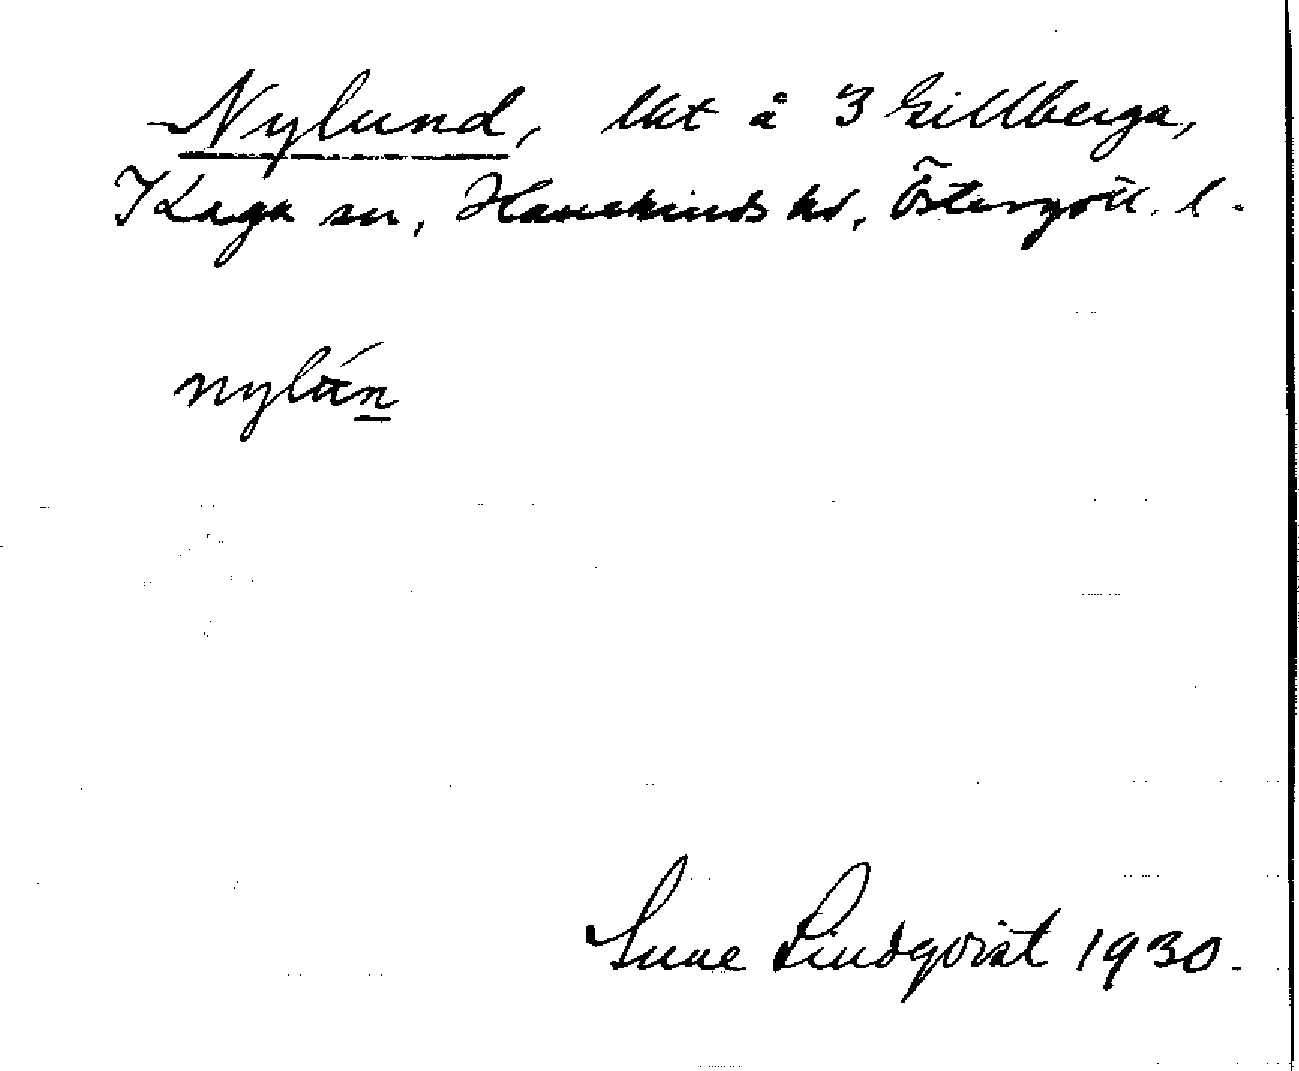 Nylund, lkt å 3 Gillberga,
Kaga sn, Hanekinds hd, Östergötl. l.
nylún
Sune Lindqvist 1930.